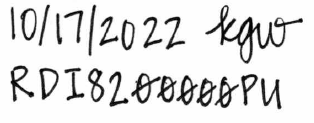 10/17/2022 kgw
RDI8200000PU